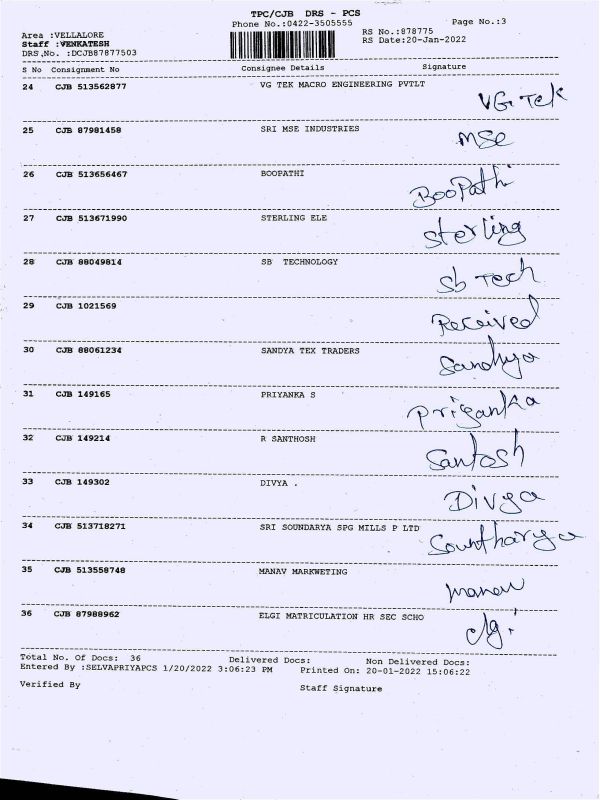 TPC/CJB DRS - PCS
Phone No.:0422-3505555
Page No.:3
Area :VELLALORE
RS No.:878775
Staff :VENKATESH
RS Date:20-Jan-2022
DRS.No. :DCJB87877503
S No Consignment No Consignee Details Signature
24 CJB 513562877 VG TEK MACRO ENGINEERING PVTLT
VG Tek
25 CJB 87981458 SRI MSE INDUSTRIES
MSE
26 CJB 513656467 BOOPATHI
BooPathi
27 CJB 513671990 STERLING ELE
Sterling
28 CJB 88049814 SB TECHNOLOGY
Sb Tech
29 CJB 1021569
Received
30 CJB 88061234 SANDYA TEX TRADERS
Sandhya
31 CJB 149165 PRIYANKA S
Priyanka
32 CJB 149214 R SANTHOSH
Santosh
33 CJB 149302 DIVYA .
Divya
34 CJB 513718271 SRI SOUNDARYA SPG MILLS P LTD
Sountharya
35 CJB 513558748 MANAV MARKWETING
manav
36 CJB 87988962 ELGI MATRICULATION HR SEC SCHO
elgi
Total No. Of Docs: 36 Delivered Docs: Non Delivered Docs:
Entered By :SELVAPRIYAPCS 1/20/2022 3:06:23 PM Printed On: 20-01-2022 15:06:22
Verified By Staff Signature